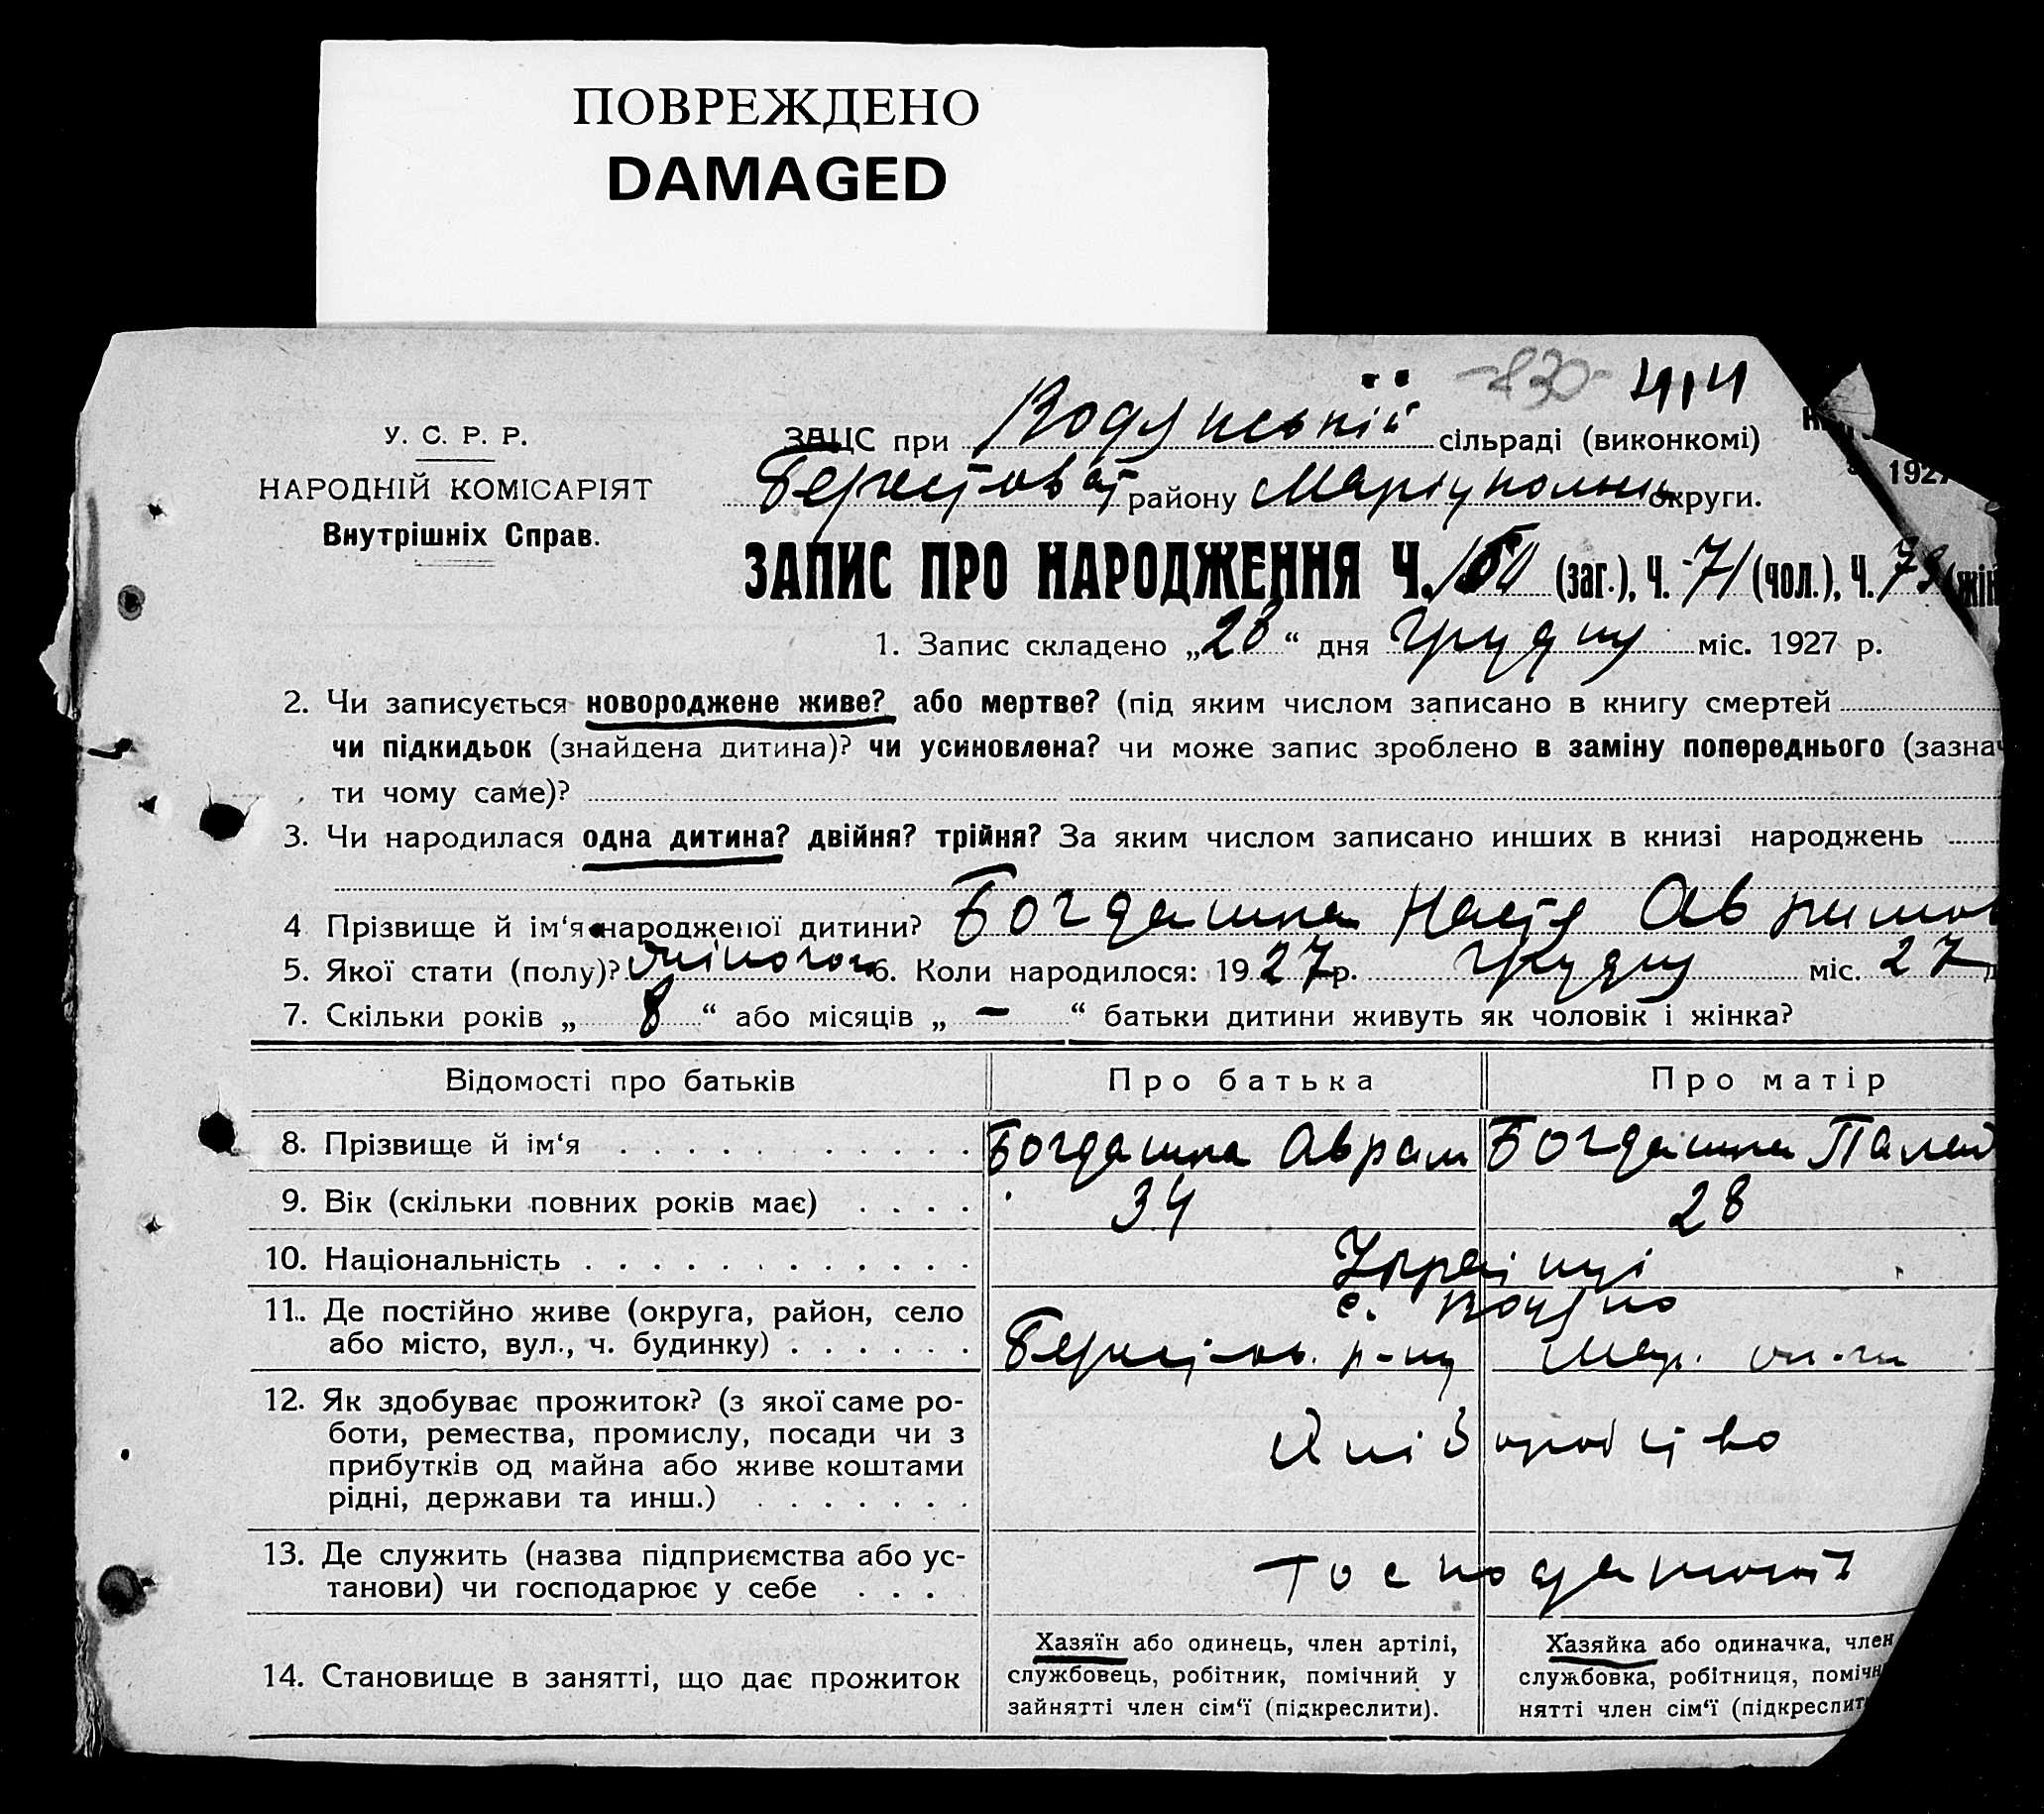 ПОВРЕЖДЕНО
DAMAGED
-830- 414
У. С. Р. Р.
НАРОДНІЙ КОМІСАРІЯТ
Внутрішніх Справ.
ЗАЦС при сільраді (виконкомі)
Берестов району Маріупольськ округи.
1927
ЗАПИС ПРО НАРОДЖЕННЯ Ч. (заг.), Ч. 71 (чол.), Ч. 79 (жін
1. Запис складено „28“ дня грудня міс. 1927 р.
2. Чи записується новороджене живе? або мертве? (під яким числом записано в книгу смертей
чи підкидьок (знайдена дитина)? чи усиновлена? чи може запис зроблено в заміну попереднього (зазнач
ти чому саме)?
3. Чи народилася одна дитина? двійня? трійня? За яким числом записано инших в книзі народжень
4 Прізвище й ім‘я народженої дитини? Богдашка Настя
5. Якої стати (полу)? жіночої 6. Коли народилося: 1927р. грудня міс. 27
7. Скільки років „ 8 “ або місяців „ — “ батьки дитини живуть як чоловік і жінка?
Відомості про батьків Про батька Про матір
8. Прізвище й ім‘я Богдашка Аврам Богдашка
9. Вік (скільки повних років має) 34 28
10. Національність Українці
11. Де постійно живе (округа, район, село с.
або місто, вул., ч. будинку) р-ну Мар.
12. Як здобуває прожиток? (з якої саме ро-
боти, ремества, промислу, посади чи з Хліборобство
прибутків од майна або живе коштами
рідні, держави та инш.)
13. Де служить (назва підприємства або ус-
танови) чи господарює у себе
14. Становище в занятті, що дає прожиток
Хазяїн або одинець, член артілі,
службовець, робітник, помічний у
зайнятті член сім‘ї (підкреслити).
Хазяйка або одиначка, член
службовка, робітниця, помічн
нятті член сім‘ї (підкреслит